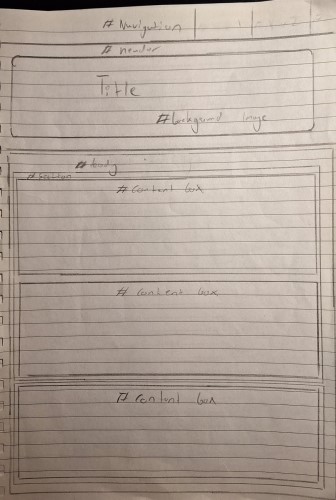 # Navigation
# header
Title
# background image
# body
# section
# content box
# content box
# content box